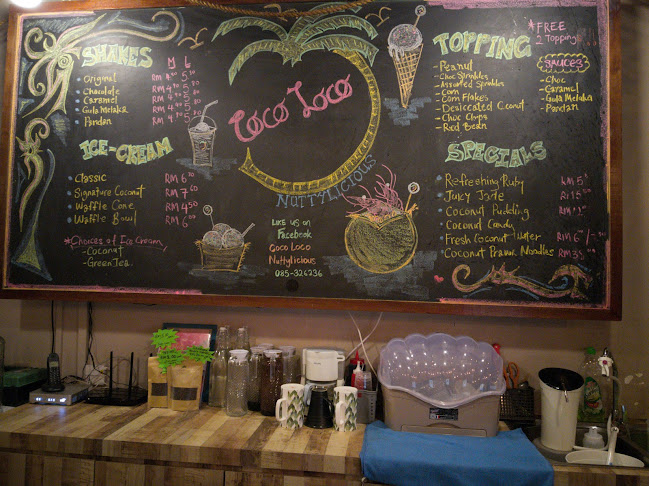 SHAKES M L
Original
Chocolate
Caramel
Gula Melaka
Pandan
ICE-CREAM
Classic RM 6.50
Signature Coconut RM 7.60
Waffle Cone RM 4.50
Waffle Bowl RM 6.00
*Choices of Ice Cream
-Coconut
-Green Tea
Coco Loco
NUTTYLICIOUS
LIKE US ON
Facebook
Coco Loco
Nuttylicious
085-326236
TOPPING
-Peanut
-Choc Sprinkles
-Assorted Sprinkles
-Corn
-Corn Flakes
-Desiccated Coconut
-Choc Chips
-Red Bean
*FREE
2 Topping
SAUCES
-Choc
-Caramel
-Gula Melaka
-Pandan
SPECIALS
Refreshing Ruby
Juicy Jade
Coconut Pudding
Coconut Candy
Fresh Coconut Water
Coconut Prawn Noodles